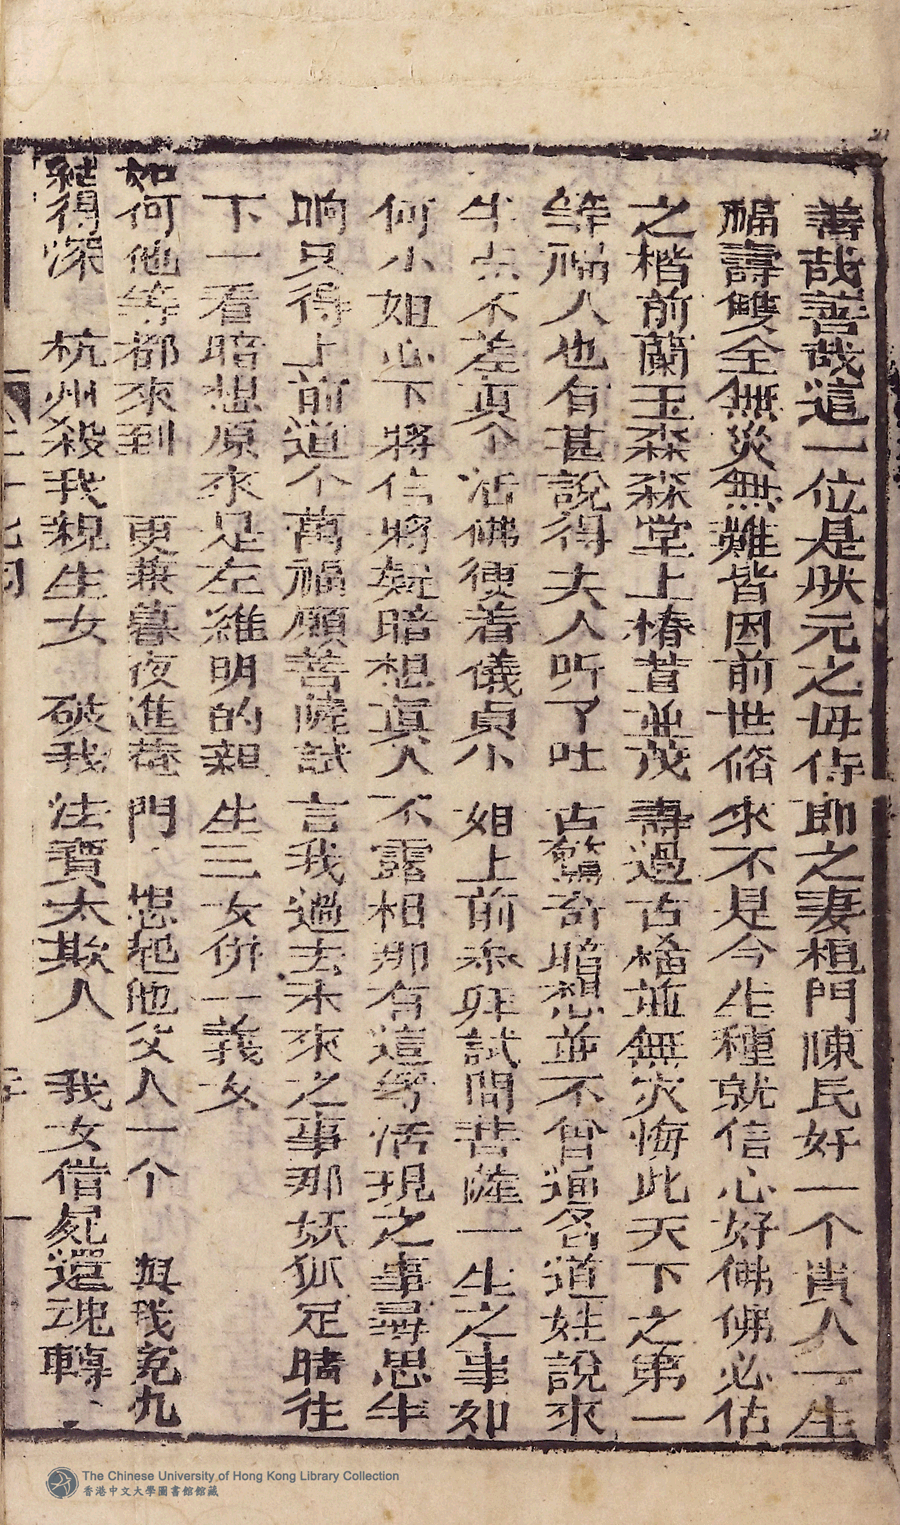 善哉善哉這一位是狀元之母侍郎之妻相門陳氏好一个貴人一生
福壽雙全無災無難皆因前世脩來不是今生種就信心好佛佛必佑
之楷前蘭玉森森堂上椿萱並茂壽過古稀並無灾悔此天下之第一
等福人也有甚說得夫人听了吐舌驚奇暗想並不曾通名道姓說來
生点不差真个活佛便着儀貞小姐上前叅拜試問菩薩一生之事如
何小姐心下將信將疑暗想真人不露相那有這等活現之事尋思半
晌只得上前道个萬福願菩薩試言我過去未來之事那妖狐足睛往
下一看暗想原來是左維明的親生三女併一義女
如何他等都來到　更兼暮夜進菴門　想起他父人一个　與我寃九
結得深　杭州殺我親生女　破我法寶太欺人　我女借屍還魂轉
The Chinese University of Hong Kong Library Collection
香港中文大學圖書館館藏